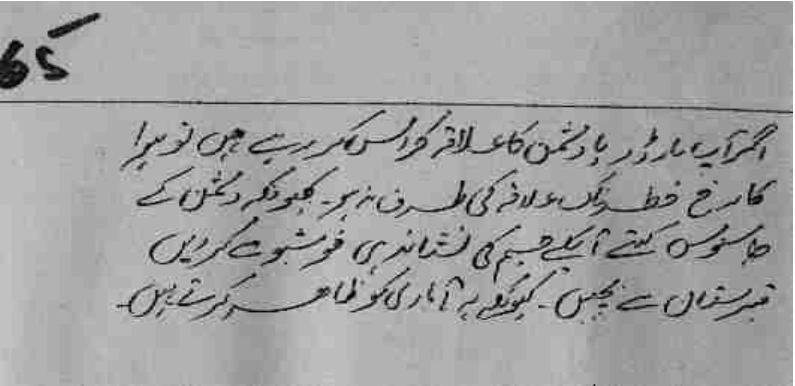 65
اگر آپ بارڈر یا دشمن کا علاقہ کراس کر رہے ہیں تو ہوا
کا رخ خطرناک علاقہ کی طرف نہ ہو۔ کیونکہ دشمن کے
جاسوس کتے آپکے جسم کی نشاندہی خوشبو سے کر دیں
قبرستان سے بچیں۔ کیونکہ یہ آبادی کو ظاہر کرتے ہیں۔